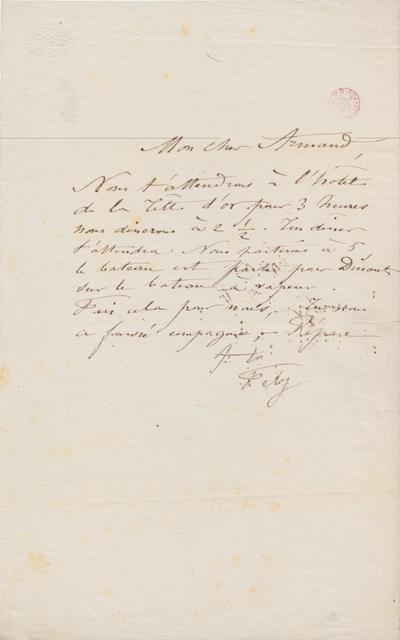 Mon cher Armand,
Nous t'attendrons à l'hotel
de la Tête d'or pour 3 heures
nous dinerons à 2 1/2. Ton diner
t'attendra. Nous partons à 5
le bateau est parti pour Dinant
sur le bateau à vapeur.
Fais cela pour nous, Tu nous
a faussé compagnie, Répare
à toi
Fély